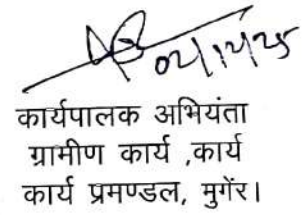 02/12/25
कार्यपालक अभियंता
ग्रामीण कार्य ,कार्य
कार्य प्रमण्डल, मुगेंर।